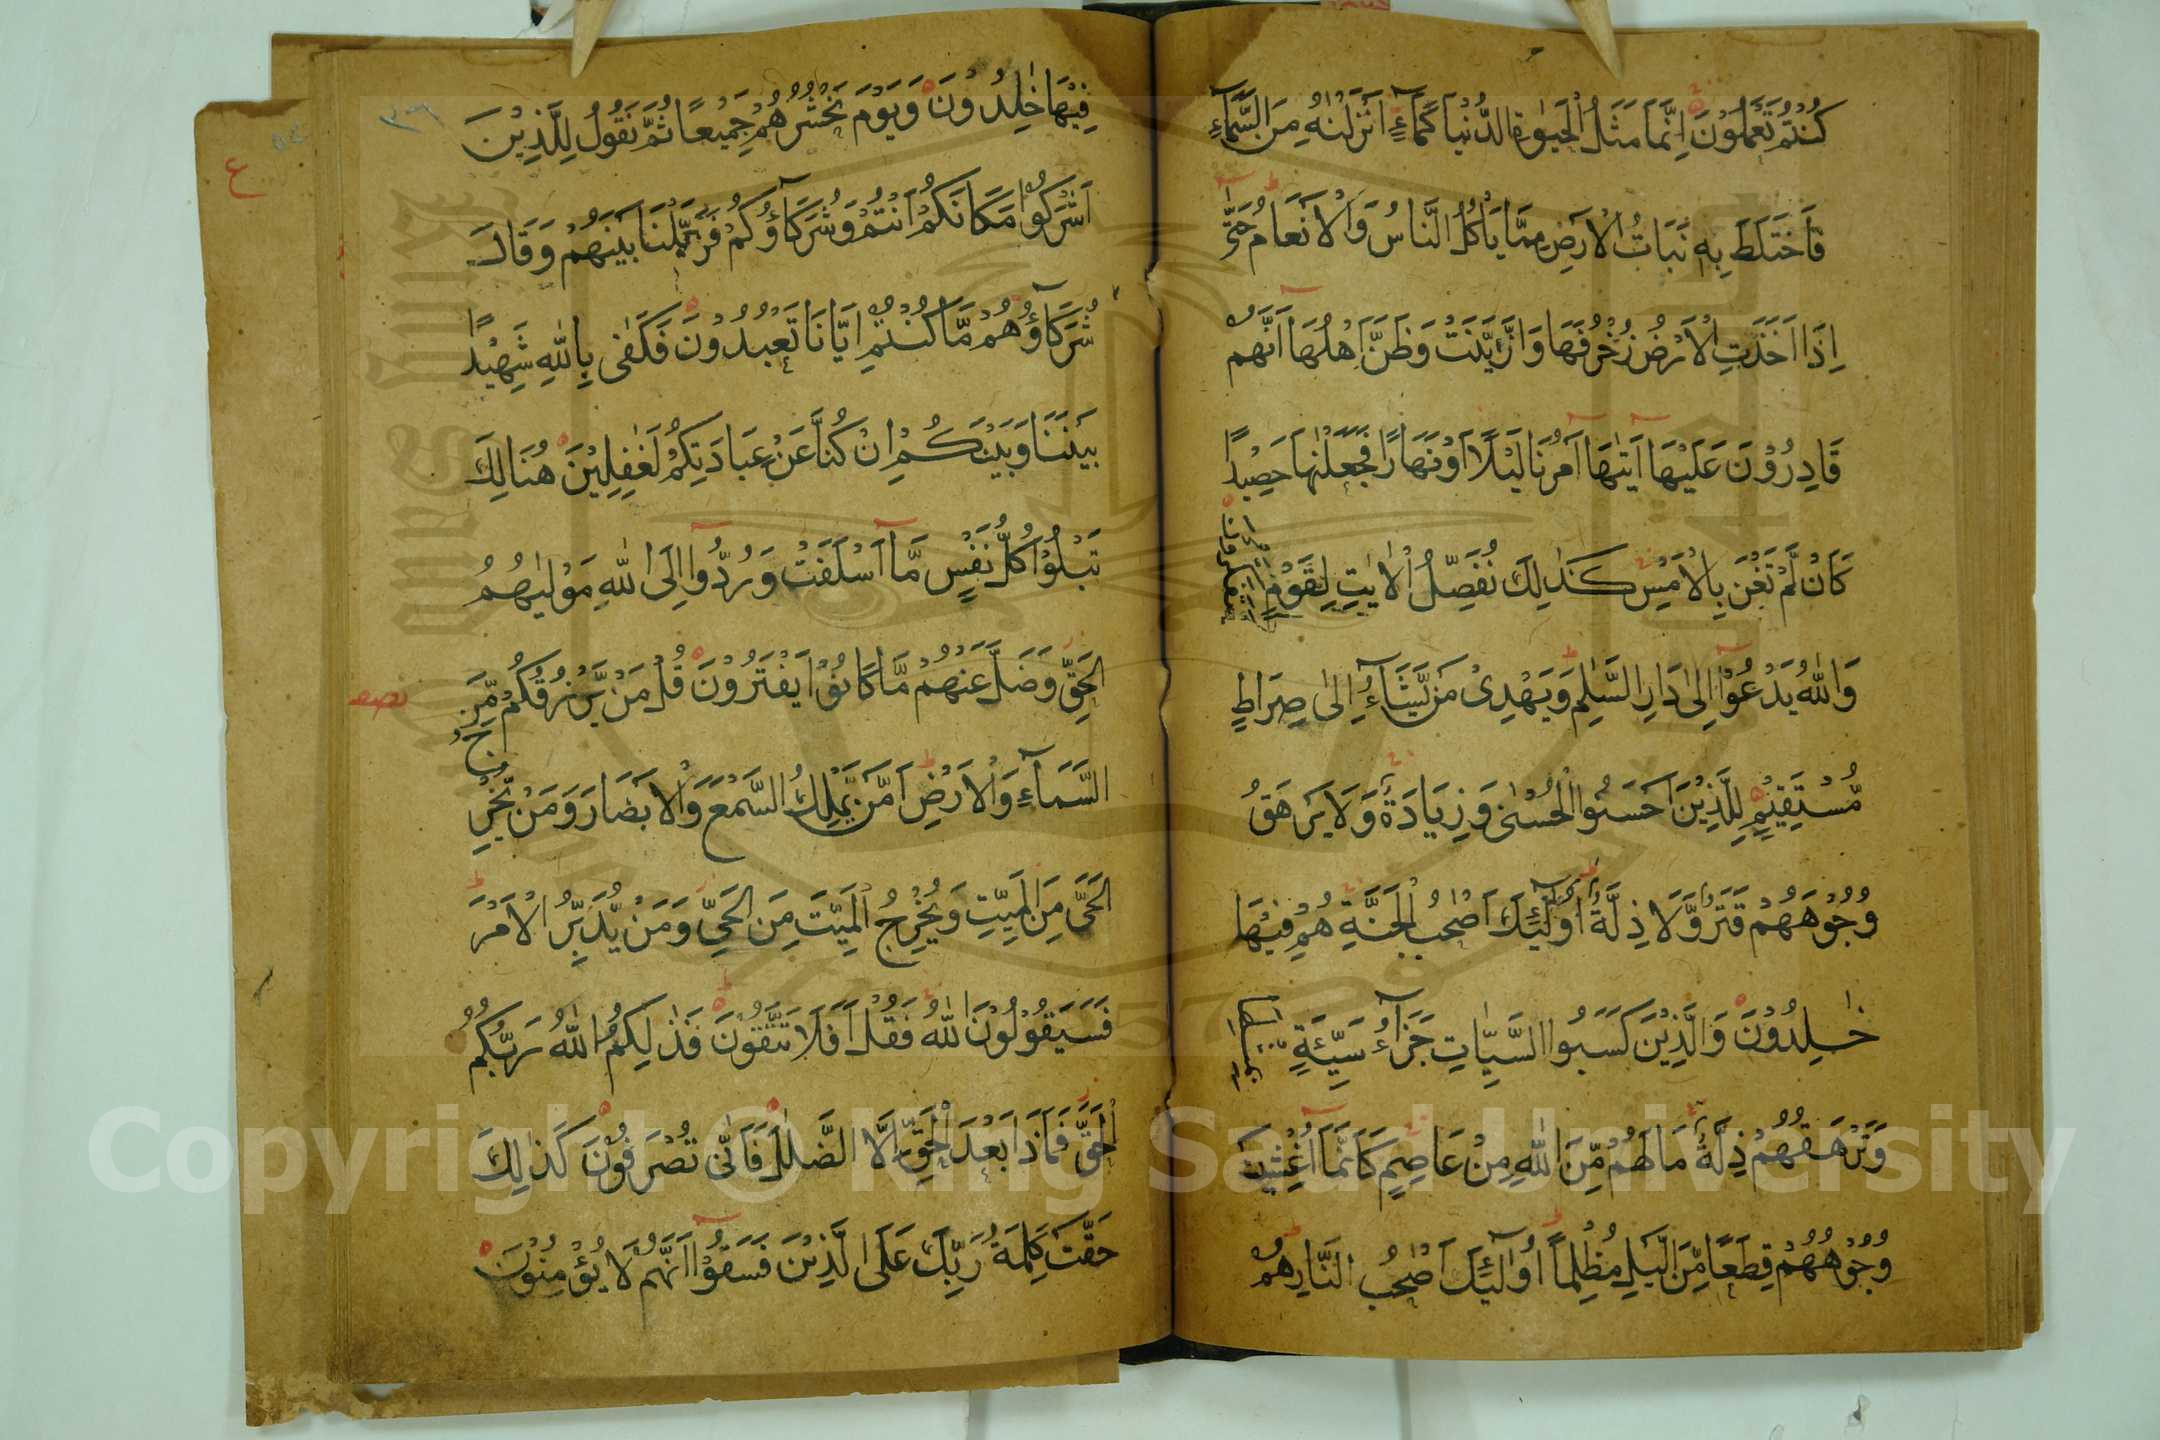 كُنْتُمْ تَعْمَلُوْنَ اِنَّمَا مَثَلُ الْحَيٰوةِ الدُّنْيَا كَمَآءٍ اَنْزَلْنٰهُ مِنَ السَّمَآءِ
فَاخْتَلَطَ بِهٖ نَبَاتُ الْاَرْضِ مِمَّا يَاْكُلُ النَّاسُ وَالْاَنْعَامُ حَتّٰٓى
اِذَا اَخَذَتِ الْاَرْضُ زُخْرُفَهَا وَازَّيَّنَتْ وَظَنَّ اَهْلُهَا اَنَّهُمْ
قَادِرُوْنَ عَلَيْهَا اَتٰىهَا اَمْرُنَا لَيْلًا اَوْ نَهَارًا فَجَعَلْنٰهَا حَصِيْدًا
كَاَنْ لَّمْ تَغْنَ بِالْاَمْسِ كَذٰلِكَ نُفَصِّلُ الْاٰيٰتِ لِقَوْمٍ يَّتَفَكَّرُوْنَ
وَاللّٰهُ يَدْعُوْٓا اِلٰى دَارِ السَّلٰمِ وَيَهْدِىْ مَنْ يَّشَآءُ اِلٰى صِرَاطٍ
مُّسْتَقِيْمٍ لِلَّذِيْنَ اَحْسَنُوا الْحُسْنٰى وَزِيَادَةٌ وَلَا يَرْهَقُ
وُجُوْهَهُمْ قَتَرٌ وَّلَا ذِلَّةٌ اُولٰٓئِكَ اَصْحٰبُ الْجَنَّةِ هُمْ فِيْهَا
خٰلِدُوْنَ وَالَّذِيْنَ كَسَبُوا السَّيِّاٰتِ جَزَآءُ سَيِّئَةٍ بِمِثْلِهَا
وَتَرْهَقُهُمْ ذِلَّةٌ مَا لَهُمْ مِّنَ اللّٰهِ مِنْ عَاصِمٍ كَاَنَّمَا اُغْشِيَتْ
وُجُوْهُهُمْ قِطَعًا مِّنَ الَّيْلِ مُظْلِمًا اُولٰٓئِكَ اَصْحٰبُ النَّارِ هُمْ
فِيْهَا خٰلِدُوْنَ وَيَوْمَ نَحْشُرُهُمْ جَمِيْعًا ثُمَّ نَقُوْلُ لِلَّذِيْنَ
اَشْرَكُوْا مَكَانَكُمْ اَنْتُمْ وَشُرَكَآؤُكُمْ فَزَيَّلْنَا بَيْنَهُمْ وَقَالَ
شُرَكَآؤُهُمْ مَّا كُنْتُمْ اِيَّانَا تَعْبُدُوْنَ فَكَفٰى بِاللّٰهِ شَهِيْدًا
بَيْنَنَا وَبَيْنَكُمْ اِنْ كُنَّا عَنْ عِبَادَتِكُمْ لَغٰفِلِيْنَ هُنَالِكَ
تَبْلُوْا كُلُّ نَفْسٍ مَّآ اَسْلَفَتْ وَرُدُّوْٓا اِلَى اللّٰهِ مَوْلٰىهُمُ
الْحَقِّ وَضَلَّ عَنْهُمْ مَّا كَانُوْا يَفْتَرُوْنَ قُلْ مَنْ يَّرْزُقُكُمْ مِّنَ
السَّمَآءِ وَالْاَرْضِ اَمَّنْ يَّمْلِكُ السَّمْعَ وَالْاَبْصَارَ وَمَنْ يُّخْرِجُ
الْحَىَّ مِنَ الْمَيِّتِ وَيُخْرِجُ الْمَيِّتَ مِنَ الْحَىِّ وَمَنْ يُّدَبِّرُ الْاَمْرَ
فَسَيَقُوْلُوْنَ اللّٰهُ فَقُلْ اَفَلَا تَتَّقُوْنَ فَذٰلِكُمُ اللّٰهُ رَبُّكُمُ
الْحَقُّ فَمَاذَا بَعْدَ الْحَقِّ اِلَّا الضَّلٰلُ فَاَنّٰى تُصْرَفُوْنَ كَذٰلِكَ
حَقَّتْ كَلِمَةُ رَبِّكَ عَلَى الَّذِيْنَ فَسَقُوْٓا اَنَّهُمْ لَا يُؤْمِنُوْنَ
ع
نصف
Copyright © King Saud University